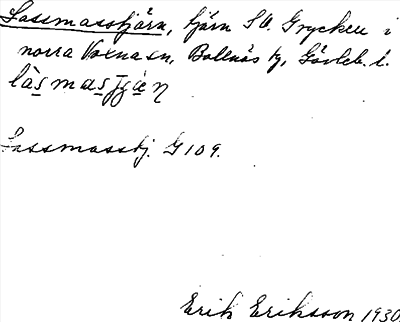 Lassmasstjärn, tjärn S.O. Grycken i
norra Voxna sn, Bollnäs tg, Gävleb. l.
làsmasʃæ̀η
Lassmasstj. G 109.
Erik Eriksson 1930.